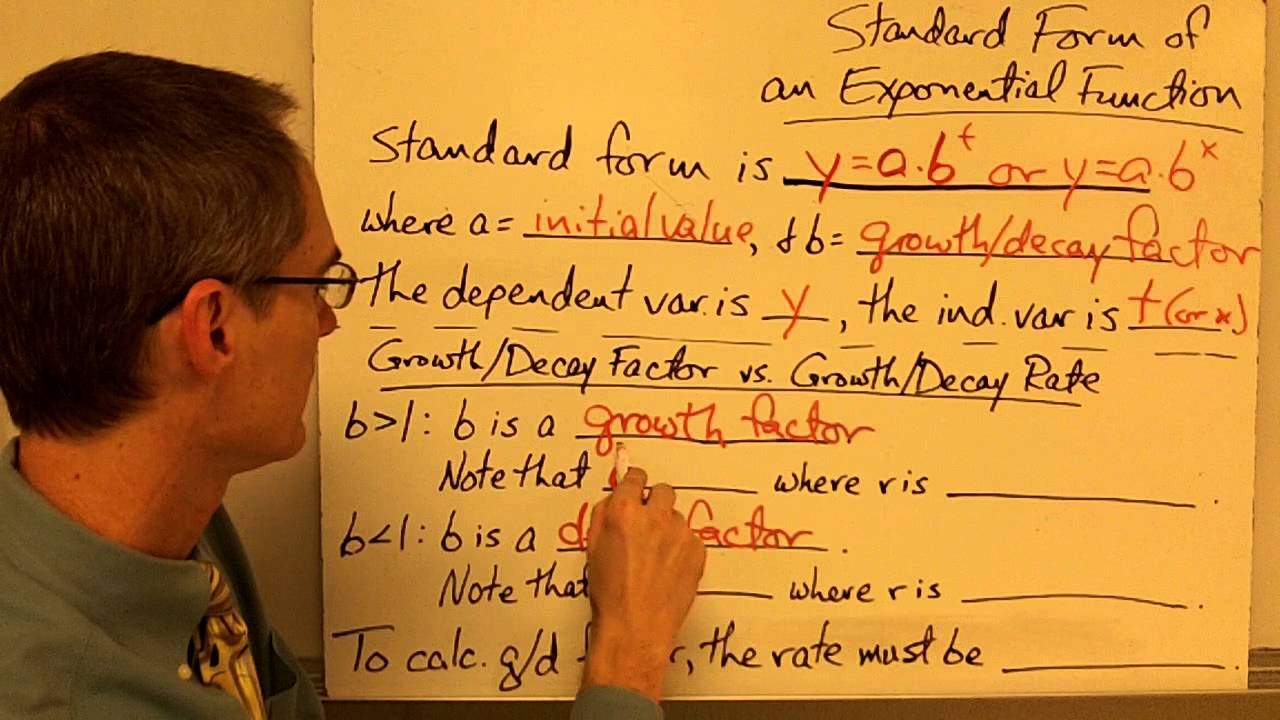 Standard Form of
an Exponential Function
Standard form is y=a·b^t or y=a·b^x
where a= initial value, & b= growth/decay factor
The dependent var. is y, the ind. var is t (or x)
Growth/Decay Factor vs. Growth/Decay Rate
b>1: b is a growth factor
Note that where r is .
b<1: b is a factor.
Note that where r is .
To calc. g/d , the rate must be .